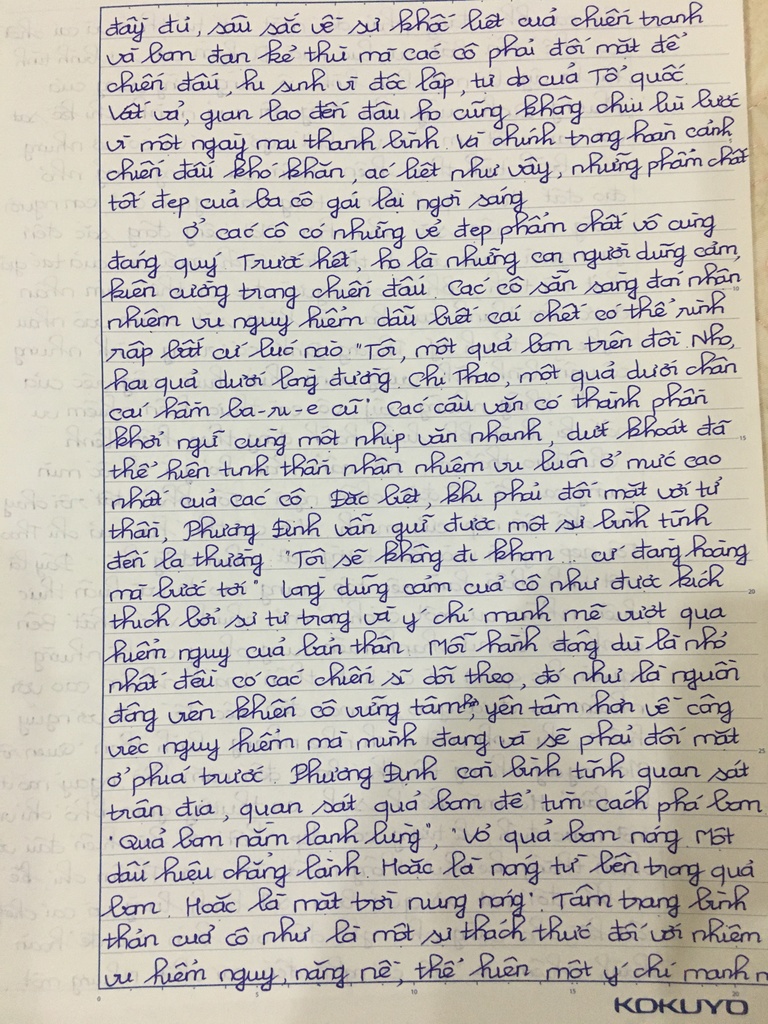 đầy đủ, sâu sắc về sự khốc liệt của chiến tranh
và bom đạn kẻ thù mà các cô phải đối mặt để
chiến đấu, hi sinh vì độc lập, tự do của Tổ quốc.
Vất vả, gian lao đến đâu họ cũng không chịu lùi bước
vì một ngày mai thanh bình. Và chính trong hoàn cảnh
chiến đấu khó khăn, ác liệt như vậy, những phẩm chất
tốt đẹp của ba cô gái lại ngời sáng
Ở các cô có những vẻ đẹp phẩm chất vô cùng
đáng quý. Trước hết, họ là những con người dũng cảm,
kiên cường trong chiến đấu. Các cô sẵn sàng đón nhận
nhiệm vụ nguy hiểm dẫu biết cái chết có thể rình
rập bất cứ lúc nào "Tôi, một quả bom trên đồi. Nho,
hai quả dưới lòng đường. Chị Thao, một quả dưới chân
cái hầm ba-ri-e cũ". Các câu văn có thành phần
khởi ngữ cùng một nhịp văn nhanh, dứt khoát đã
thể hiện tinh thần nhận nhiệm vụ luôn ở mức cao
nhất của các cô. Đặc biệt, khi phải đối mặt với tử
thần, Phương Định vẫn giữ được một sự bình tĩnh
đến lạ thường. "Tôi sẽ không đi khom... cứ đàng hoàng
mà bước tới". Lòng dũng cảm của cô như được kích
thích bởi sự tự trọng và ý chí mạnh mẽ vượt qua
hiểm nguy của bản thân. Mỗi hành động dù là nhỏ
nhất đều có các chiến sĩ dõi theo, đó như là nguồn
động viên khiến cô vững tâm, yên tâm hơn về công
việc nguy hiểm mà mình đang và sẽ phải đối mặt
ở phía trước. Phương Định còn bình tĩnh quan sát
trận địa, quan sát quả bom để tìm cách phá bom
"Quả bom nằm lạnh lùng", "Vỏ quả bom nóng. Một
dấu hiệu chẳng lành. Hoặc là nóng từ bên trong quả
bom. Hoặc là mặt trời nung nóng". Tâm trạng bình
thản của cô như là một sự thách thức đối với nhiệm
vụ hiểm nguy, nặng nề, thể hiện một ý chí mạnh
KOKUYO